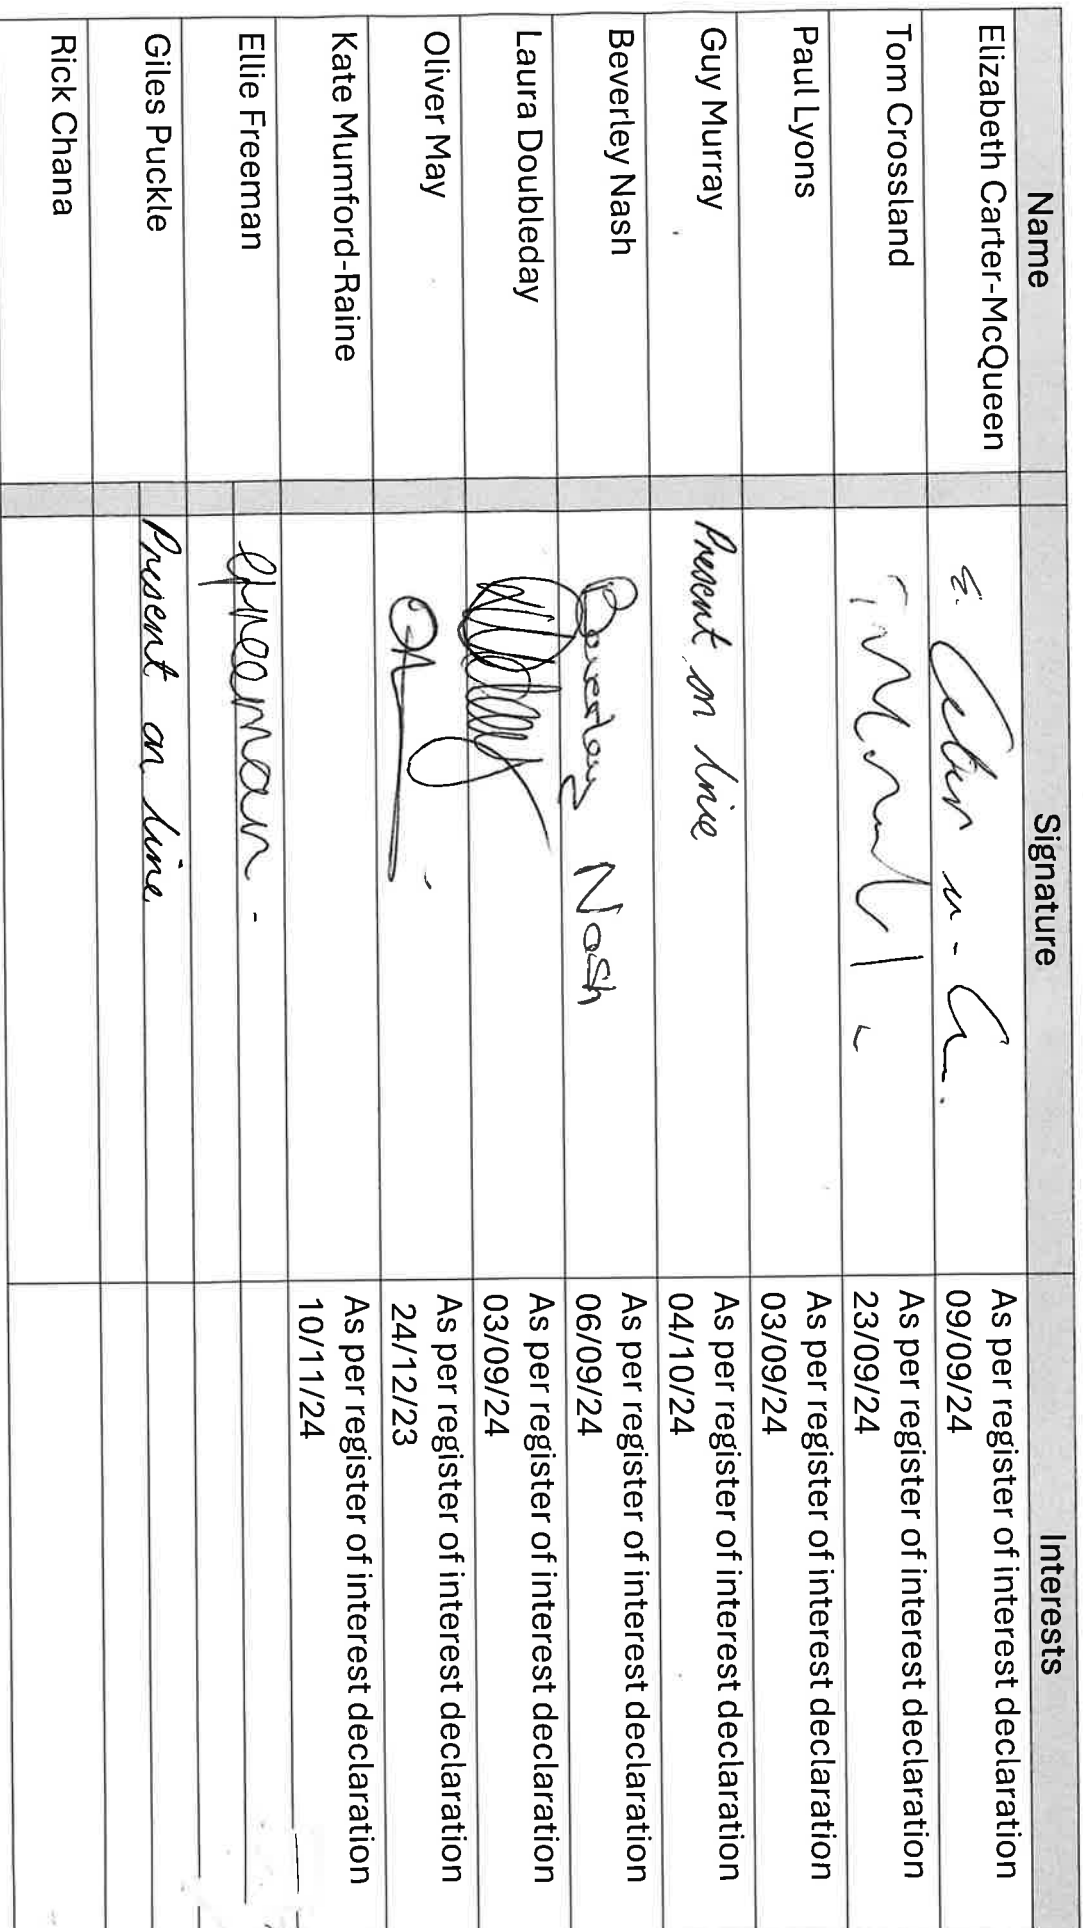 Name Signature Interests
Elizabeth Carter-McQueen As per register of interest declaration
09/09/24
Tom Crossland As per register of interest declaration
23/09/24
Paul Lyons As per register of interest declaration
03/09/24
Guy Murray Present on line As per register of interest declaration
04/10/24
Beverley Nash Beverley Nash As per register of interest declaration
06/09/24
Laura Doubleday As per register of interest declaration
03/09/24
Oliver May As per register of interest declaration
24/12/23
Kate Mumford-Raine As per register of interest declaration
10/11/24
Ellie Freeman efreeman
Giles Puckle Present on line
Rick Chana